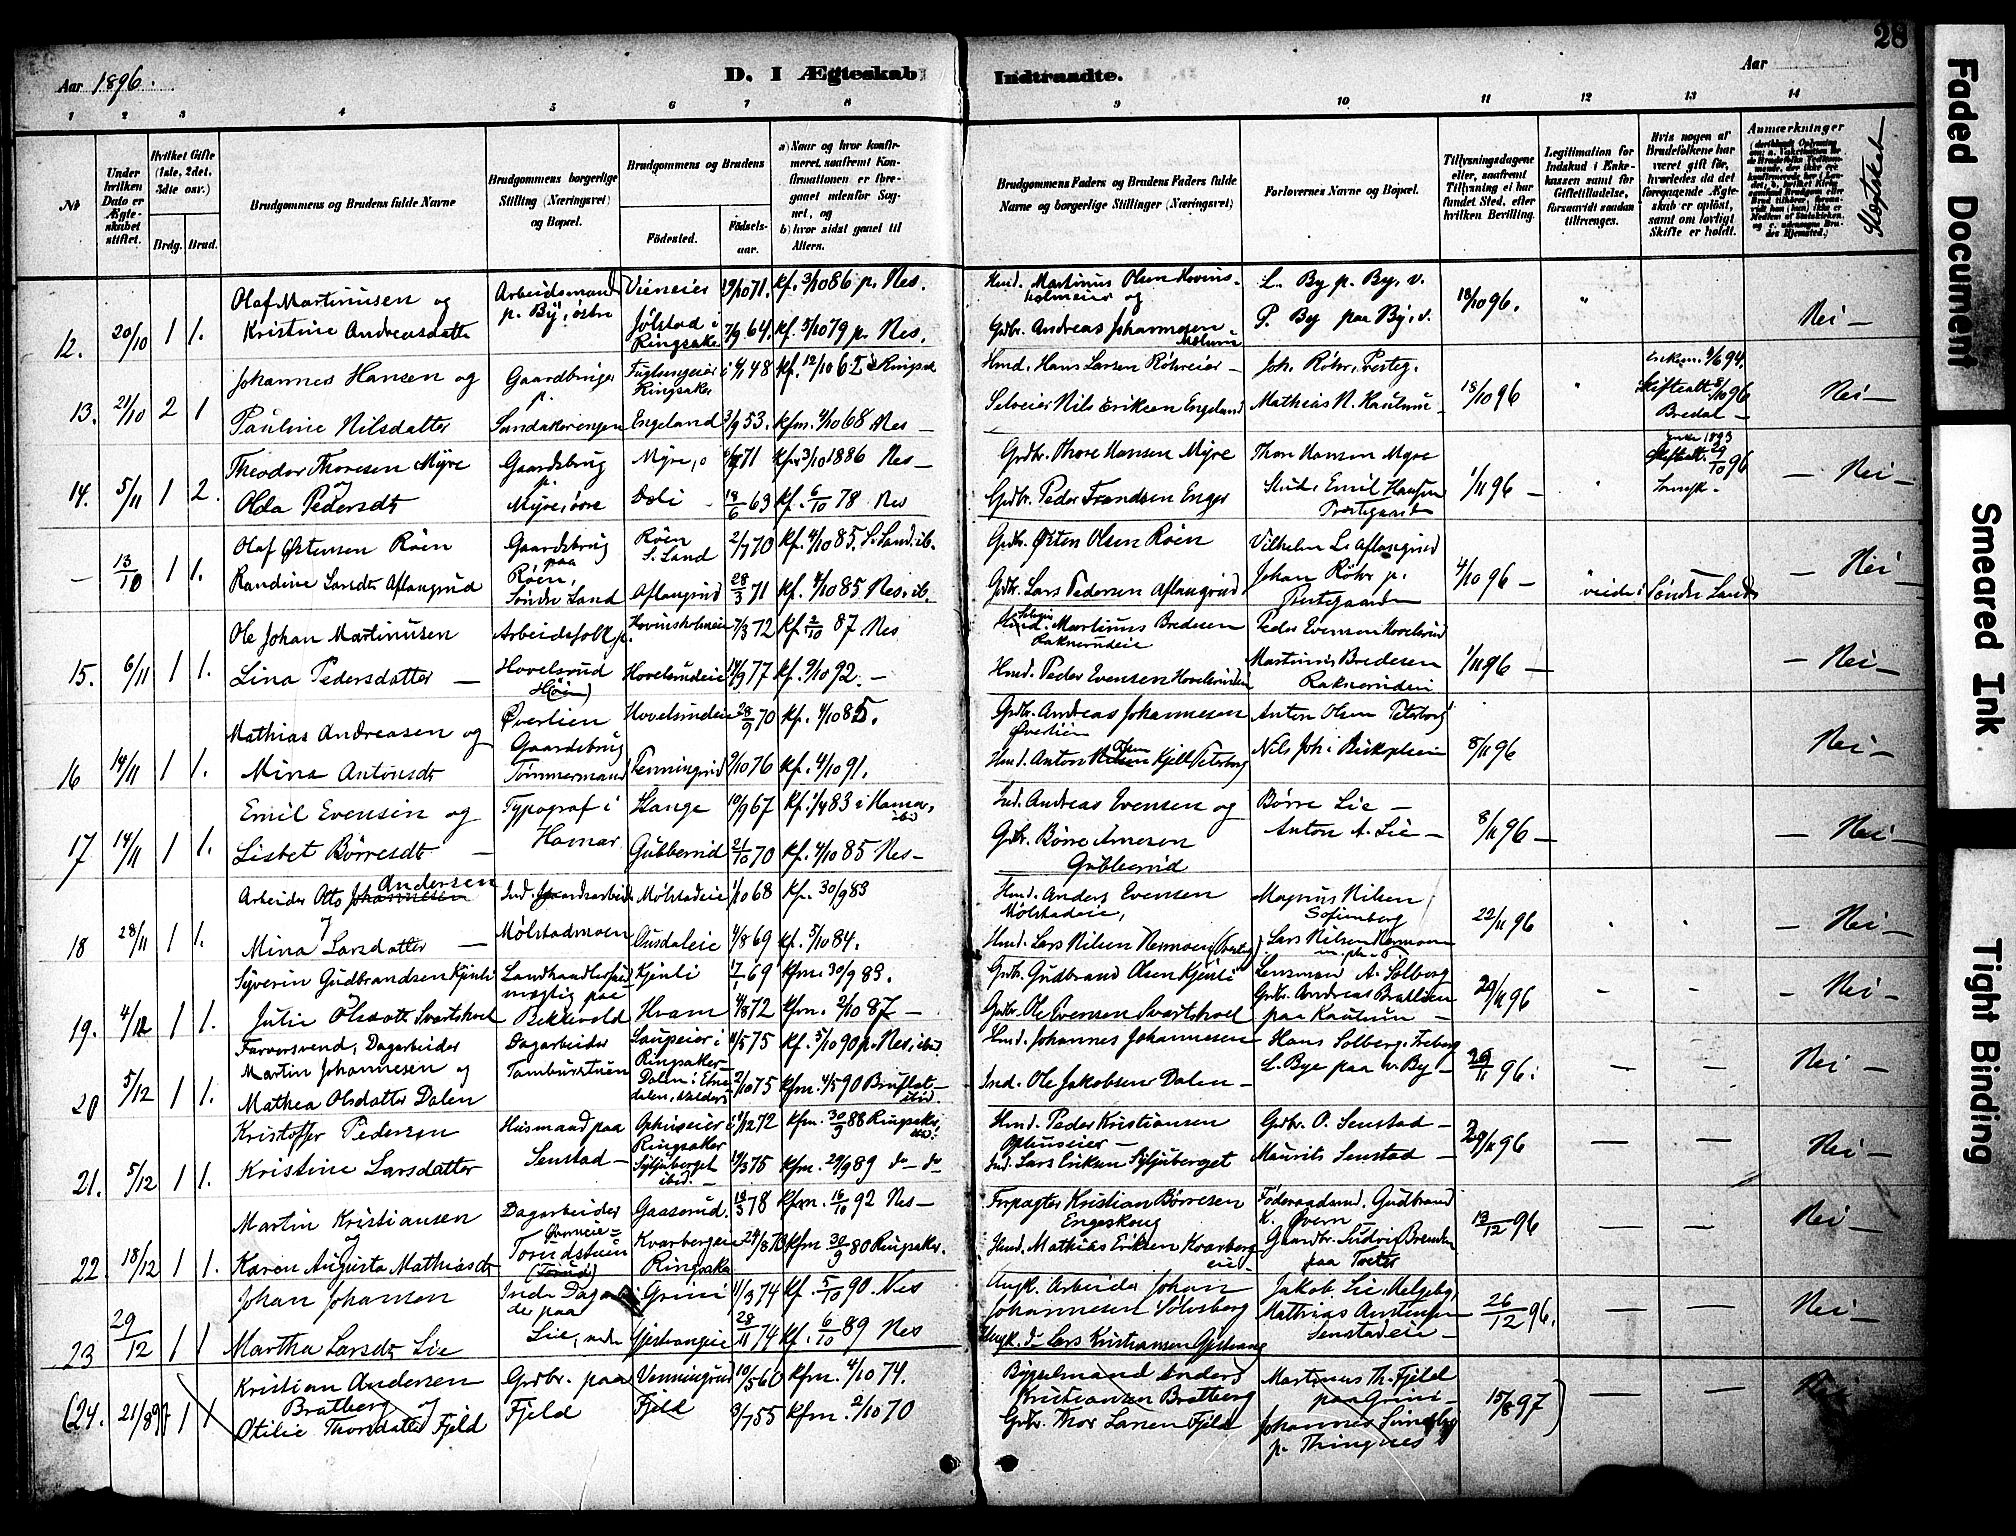 28
Aar 1896.
D. I Ægteskab
Indtraadte.
Aar
1 2 3 4 5 6 7 8 9 10 11 12 13 14
No
Under hvilken Dato er Ægteskabet stiftet.
Hvilket Gifte (1ste, 2det, 3die osv.)
Brdg. Brud.
Brudgommens og Brudens fulde Navne
Brudgommens borgerlige Stilling (Næringsvei) og Bopæl.
Brudgommens og Brudens
Fødested.
Fødselsaar.
a) Naar og hvor konfirmeret, saafremt Konfirmationen er foregaaet udenfor Sognet, og
b) hvor sidst gaaet til Alters.
Brudgommens Faders og Brudens Faders fulde Navne og borgerlige Stillinger (Næringsvei)
Forlovernes Navne og Bopæl.
Tillysningsdagene eller, saafremt Tillysning ei har fundet Sted, efter hvilken Bevilling.
Legitimation for Indskud i Enkekassen samt for Giftetilladelse, forsaavidt saadan tiltrænges.
Hvis nogen af Brudefolkene har været gift før, hvorledes da det foregaaende Ægteskab er opløst, samt om lovligt Skifte er holdt.
Anmærkninger
Slægtskab
12. 20/10 1 1.
Olaf Martinusen og
Kristine Andreasdatter
Arbeidsmand
p. By, østre
Vieneier
Jølstad i
Ringsaker
19/10 71.
7/9 64.
kf. 3/10 86 p. Nes.
kf. 5/10 79 p. Nes.
Hmd. Martinus Olsen Hovinsholmeier og
Grdbr. Andreas Johannesen
L. By p. By. v.
P. By paa By. v.
18/10 96.
Nei —
13. 21/10 2 1
Johannes Hansen og
Pauline Nilsdatter
Gaardbruger
p.
Sundakerengen
Fuglungeier i
Ringsaker
Engeland
48
3/9 53.
kf. 12/10 62 i Ringsak.
kfm. 4/10 68 Nes —
Hmd. Hans Larsen Röhreier —
Selveier Nils Eriksen Engeland
Joh. Röhr, Presteg.
Mathias N. Kautum —
18/10 96
Enkem. 9/6 94.
Skifteatt. 8/10 96
Bredal —
Nei —
14. 5/11 1 2.
Theodor Thoresen Myre
og
Olda Pedersdt
Gaardsbrug
p.
Myre, övre
Myre, ö
Dæli
71
18/6 63
kfm. 3/10 1886 Nes —
kf. 6/10 78 Nes
Grdbr. Thore Hansen Myre
Grdbr. Peder Frandsen Enger
Thor Hansen Myre
Stud. Emil Hansen
Prestegaarden
1/11 96 —
Enke 1893
Skifteatt. 29/10 96
— Nei —
— 13/10 1 1.
Olaf Østensen Røen
Randine Larsdt Aflangrud
Gaardsbrug
paa
Røen,
Søndre Land
Røen
S. Land
Aflangrud
2/7 70
28/3 71
kf. 4/10 85. S. Land. ib.
kf. 4/10 85 Nes. ib.
Grdbr. Østen Olsen Røen
Grdbr. Lars Pedersen Aflangrud
Vilhelm L. Aflangrud
Johan Röhr p.
Prestegaarden
4/10 96 —
viede i Søndre Land
— Nei —
15. 6/11 1 1.
Ole Johan Martinusen
Lina Pedersdatter —
Arbeidsfolk p.
Hovelsrud
Hovinsholmeie
Hovelsrudeie
7/3 72
14/9 77
kf. 2/10 87 Nes
kf. 9/10 92. —
Martinus Bredesen
Raknerudeie
Hmd. Peder Evensen Hovelsrudeie
Peder Evensen Hovelsrud
Martinus Bredesen
Raknerudeie
1/11 96 —
— Nei —
16 14/11 1 1.
Mathias Andreasen og
Mina Antonsdt
Øverlien
Gaardsbrug
Tømmermand
Hovelsrudeie
Penningrud
28/9 70
9/10 76
kf. 4/10 85.
kf. 4/10 91.
Grdbr. Andreas Johannesen
Øverlien
Hmd. Anton Olsen Kjell Peterborg
Anton Olsen Peterborg
Nils Joh.
8/11 96
Nei —
17 14/11 1 1.
Emil Evensen og
Lisbet Börresdt —
Typograf i
Hamar
Stange
Gubberud
10/9 67
21/10 70
kf. 1/4 83 i Hamar,
ibid
kf. 4/10 85 Nes —
Ind. Andreas Evensen og
Grdbr. Börre Arnesen
Gubberud
Börre Lie —
Anton A. Lie —
8/11 96 —
— Nei —
18 28/11 1 1.
Arbeider Otto Andersen
og
Mina Larsdatter —
Mølstadmoen
Mølstadeie
Ausdaleie
1/10 68
4/8 69
kf. 30/9 83
kf. 5/10 84.
Hmd. Anders Evensen
Mølstadeie,
Hmd. Lars Nilsen Remoen
Magnus Nilsen
Sofienberg
Lars Nilsen Remoen
22/11 96
— Nei —
19. 4/12 1 1.
Syverin Gudbrandsen Kjenli
Julie Olsdatt Svartshoel
Landhandlerfuldmægtig paa
Bekkevold
Kjenli
Hvam
17/1 69
4/8 72
kfm. 30/9 83.
kfm. 2/10 87 —
Grdbr. Gudbrand Olsen Kjenli
Grdbr. Ole Evensen Svartshoel
Lensmand A. Solberg
Grdbr. Andreas Brattlien
paa Kautum —
29/11 96
— Nei —
20 5/12 1 1.
Farversvend, Dagarbeider
Martin Johannesen og
Mathea Olsdatter Dalen
Dagarbeider
Tamburstuen
Laupeier i
Ringsaker
Dalen i Etnedalen, Valders
4/5 75
2/10 75
kf. 5/10 90 p. Nes, ibid
kfm. 4/5 90 Bruflat —
ibid.
Hmd. Johannes Johannesen
Ind. Ole Jakobsen Dalen —
Hans Solberg, Freberg
L. Bye paa v. By —
29/11 96.
Nei —
21. 5/12 1 1.
Kristoffer Pedersen
Kristine Larsdatter
Husmand paa
Senstad —
Ophuseier i
Ringsaker
Syljuberget
ibid. —
4/12 72
19/3 75
kfm. 30/9 88 Ringsaker,
ibid.
kfm. 29/9 89 do do
Hmd. Peder Kristiansen
Ophuseier —
Ind. Lars Eriksen Syljuberget
Grdbr. O. Senstad —
Maurits Senstad —
29/11 96
Nei —
22. 18/12 1 1.
Martin Kristiansen
og
Karen Augusta Mathiasdt
Dagarbeider
Torudstuen
(Torud)
Gaaserud.
Kvarbergeie
Ringsaker
18/3 78
kfm. 16/10 92 Nes —
kfm. 30/9 80 Ringsaker.
Forpagter Kristian Börresen
Engeskoug
Hmd. Mathias Eriksen Kvarbergeie —
Föderaadsmd. Gudbrand
K. Øvern
Gaardbr. Ludvig Brenden
paa Tveter
13/12 96
— — Nei —
23 29/12 1 1
Johan Johansen
Martha Larsdt Lie
Inds. Dagarbeider paa
Lie, nedre
Grini
Gjestvangeie
1/3 74
28/11 74
kf. 5/10 90. Nes
kf. 6/10 89 Nes
Ungk. Arbeider Johan
Johannesen Solvsberg
Ungk. do Lars Kristiansen Gjestvang
Jakob Lie, Helgeby,
Mathias Amundsen
Senstadeie —
26/12 96.
— — Nei —
(24. 21/8 97 1 1
Kristian Andersen
Bratberg og
Otilie Thorsdatter Fjeld
Grdbr. paa
Fjeld
Venningrud
Fjeld
10/5 66
3/7 55
kfm. 4/10 74.
kfm. 2/10 70
Byggelmand Anders
Kristiansen Bratberg
Grdbr. Thor Larsen Fjeld
Martinus Th. Fjeld
paa Grini —
Johannes Sund
p. Thingnes
15/8 97)
— — Nei
Faded Document
Smeared Ink
Tight Binding